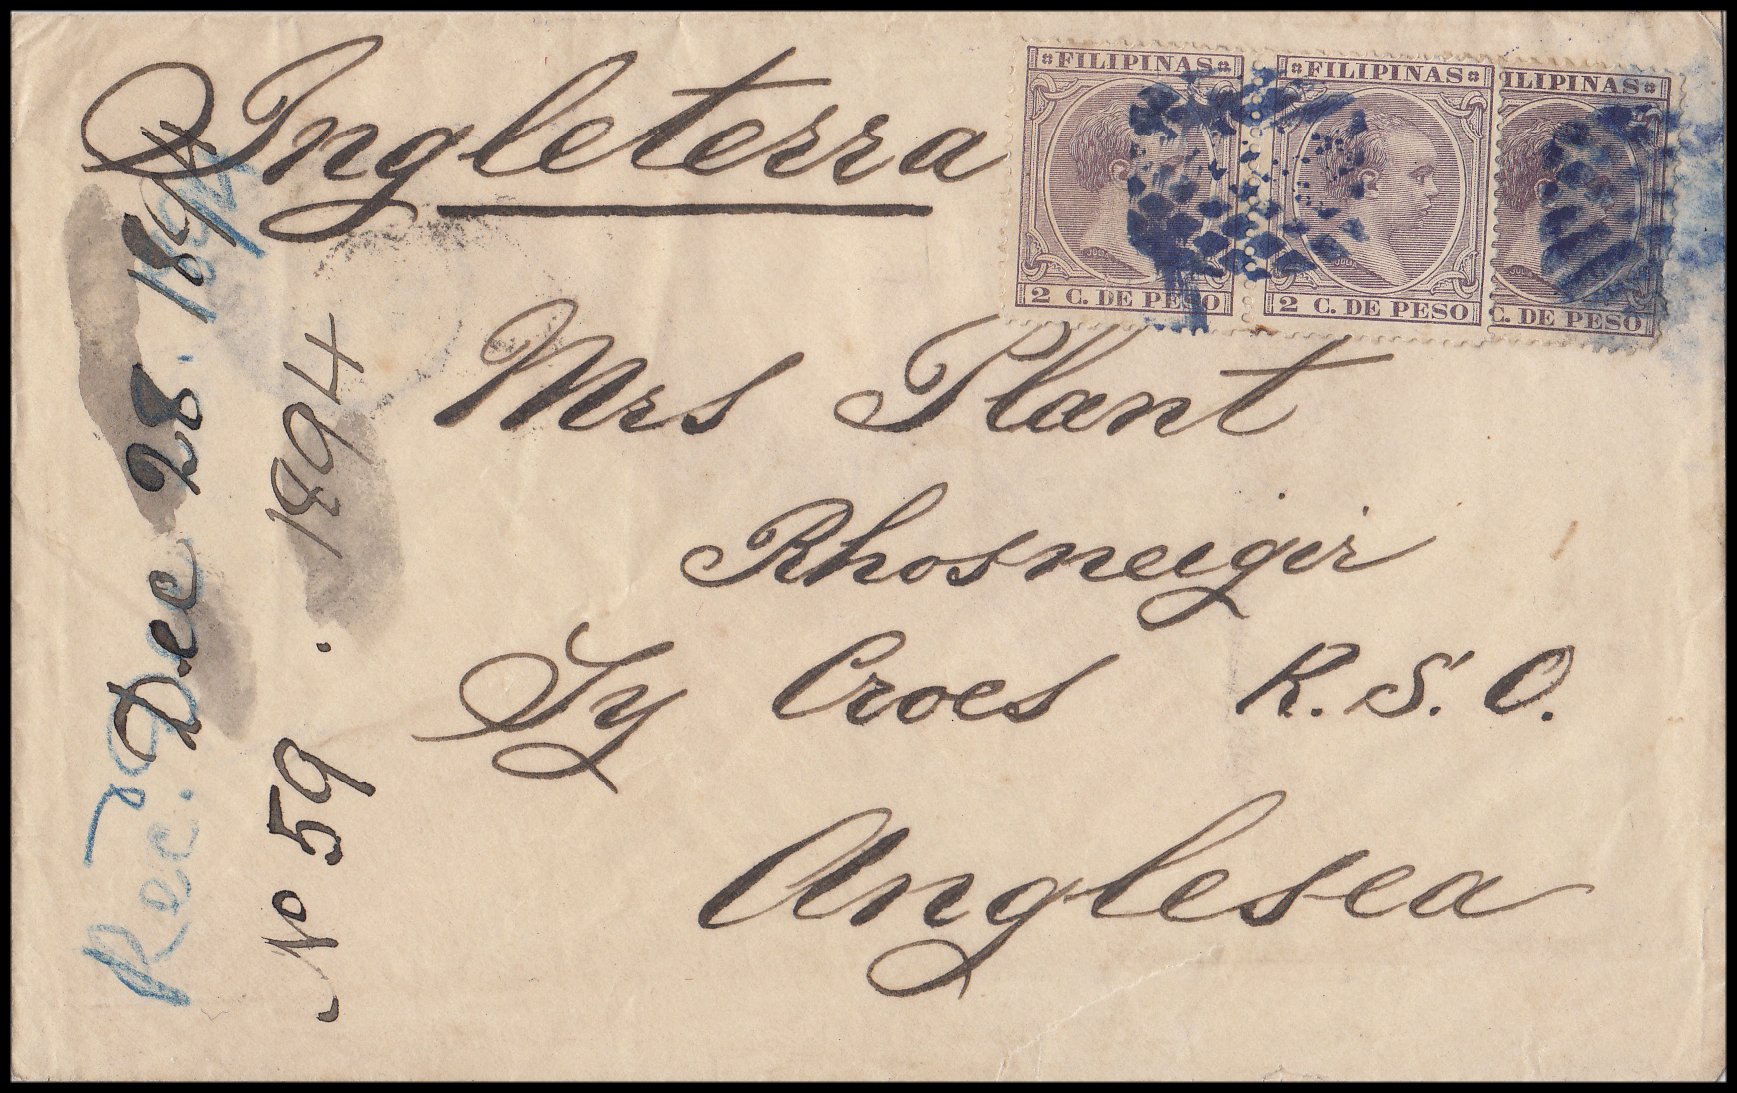 Ingleterra
FILIPINAS
2 C. DE PESO
FILIPINAS
2 C. DE PESO
ILIPINAS
C. DE PESO
Mrs Plant
Rhosneigir
Ty Croes R.S.O.
Anglesea
Rec. Dec 28. 1894
No 59 . 1894